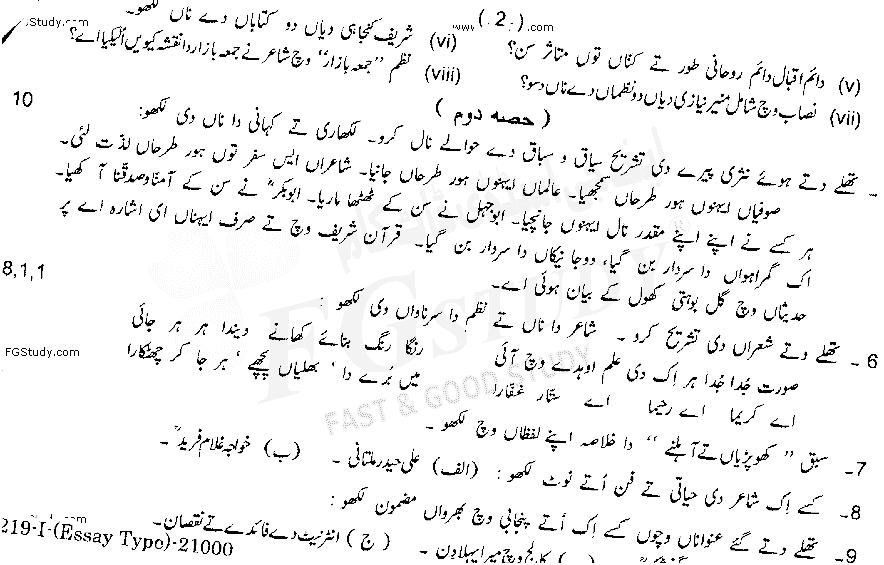 FGStudy.com
www.
( 2 )
.com
(v) دائم اقبال دائم روحانی طور تے کنّاں توں متاثر سن؟
(vi) شریف کنجاہی دیاں دو کتاباں دے ناں لکھو۔
(vii) نصاب وچ شامل منیر نیازی دیاں دو نظماں دے ناں دسو؟
(viii) نظم "جمعہ بازار" وچ شاعر نے جمعہ بازار دا نقشہ کیویں اُلیکیا اے؟
( حصہ دوم )
10
تھلے دتے ہوئے نثری پیرے دی تشریح سیاق و سباق دے حوالے نال کرو۔ لکھاری تے کہانی دا ناں دی لکھو:
صوفیاں ایہنوں ہور طرحاں سمجھیا۔ عالماں ایہنوں ہور طرحاں جانیا۔ شاعراں ایس سفر توں ہور طرحاں لذت لئی۔
ہر کسے نے اپنے اپنے مقدر نال ایہنوں جانچیا۔ ابوجہل نے سن کے ٹھٹھا ماریا۔ ابوبکرؓ نے سن کے آمنّا و صدقنا آکھیا۔
اک گمراہواں دا سردار بن گیا، دوجا نیکاں دا سردار بن گیا۔ قرآن شریف وچ تے صرف ایہناں ای اشارہ اے پر
حدیثاں وچ گل بوہتی کھول کے بیان ہوئی اے۔
8,1,1
6۔ تھلے دتے شعراں دی تشریح کرو۔ شاعر دا ناں تے نظم دا سرناواں دی لکھو:
صورت جُدا جُدا ہر اِک دی علم اوہدے وچ آئی
رنگا رنگ بنائے کھانے ویندا ہر ہر جائی
اے کریما اے رحیما اے ستّار غفّارا
میں بُرے دا، بھلیاں پچھے، ہر جا کر چھٹکارا
FGStudy.com
7۔ سبق "کھوپڑیاں تے آہلنے" دا خلاصہ اپنے لفظاں وچ لکھو۔
8۔ کسے اِک شاعر دی حیاتی تے فن اُتے نوٹ لکھو: (الف) علی حیدر ملتانی۔ (ب) خواجہ غلام فریدؒ۔
9۔ تھلے دتے گئے عنواناں وچوں کسے اِک اُتے پنجابی وچ بھرواں مضمون لکھو:
کالج وچ میرا پہلا دن۔ (ج) انٹرنیٹ دے فائدے تے نقصان۔
.com
219-I-(Essay Type)-21000
FGStudy
FAST & GOOD STUDY